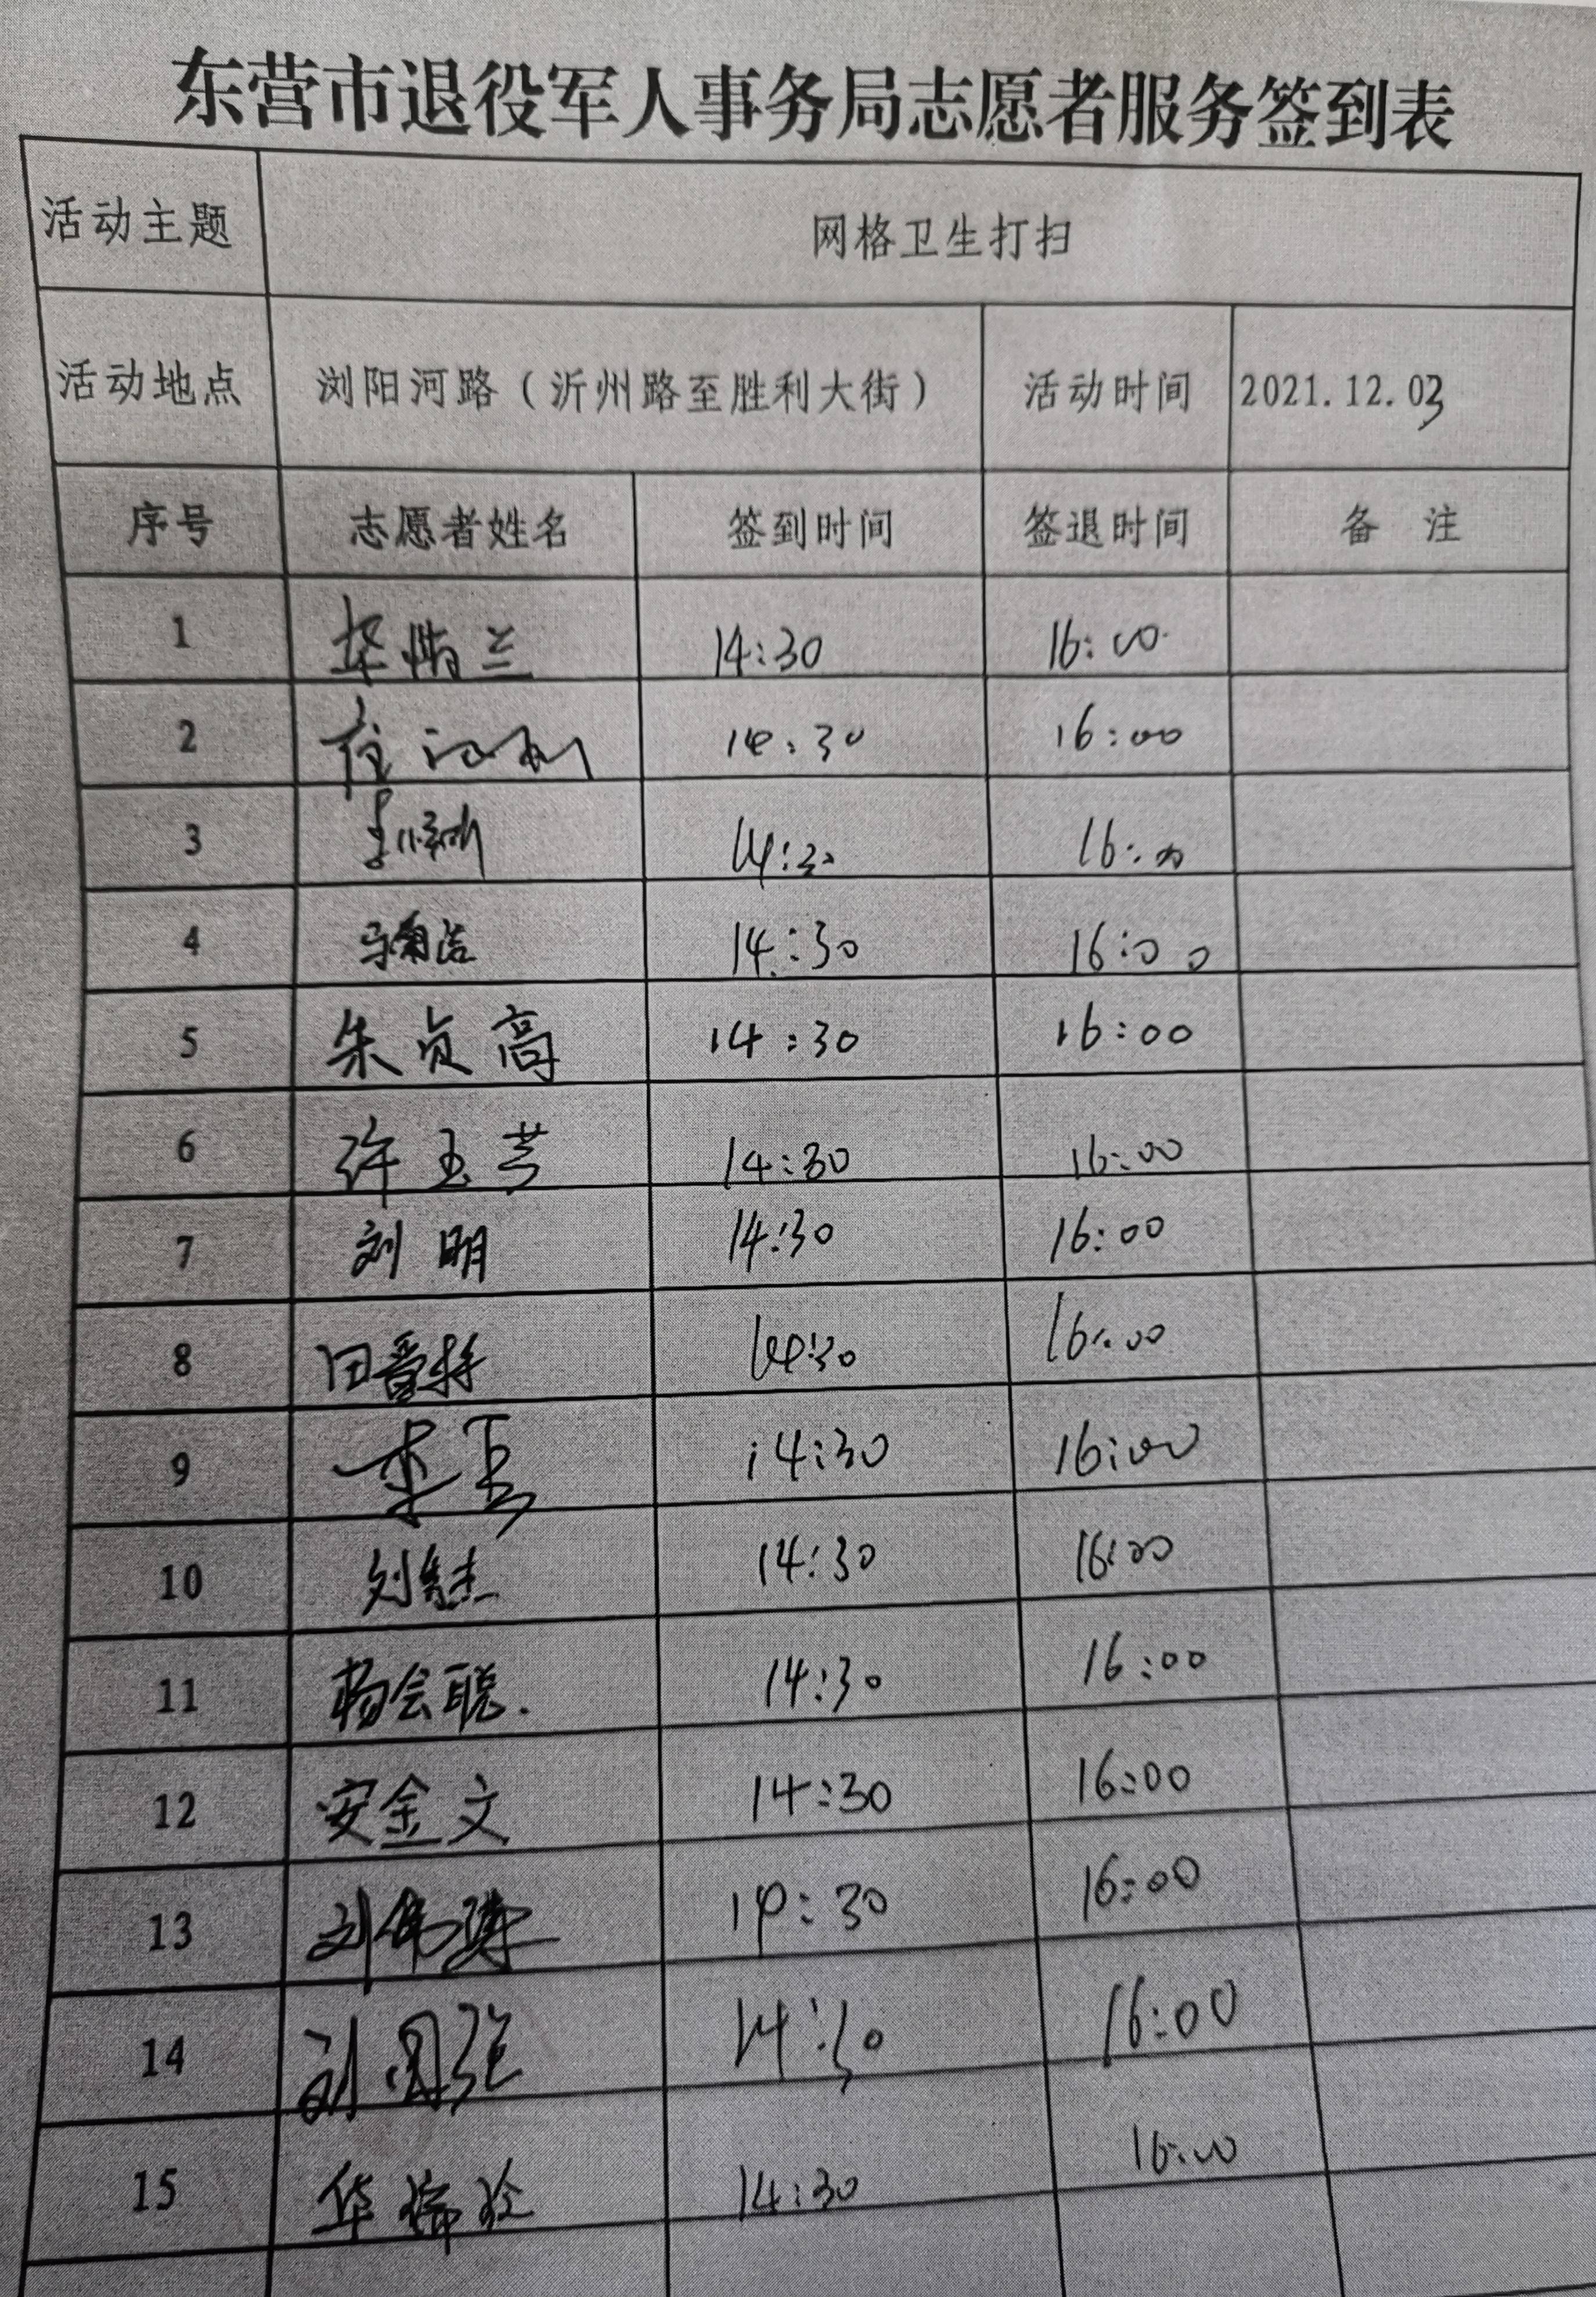 东营市退役军人事务局志愿者服务签到表
活动主题 网格卫生打扫
活动地点 浏阳河路（沂州路至胜利大街） 活动时间 2021.12.03
序号 志愿者姓名 签到时间 签退时间 备 注
1 14:30 16:00
2 14:30 16:00
3 14:30 16:00
4 14:30 16:00
5 朱贞高 14:30 16:00
6 许玉芳 14:30 16:00
7 刘明 14:30 16:00
8 14:30 16:00
9 14:30 16:00
10 14:30 16:00
11 杨会聪 14:30 16:00
12 安金文 14:30 16:00
13 14:30 16:00
14 刘国强 14:30 16:00
15 14:30 16:00